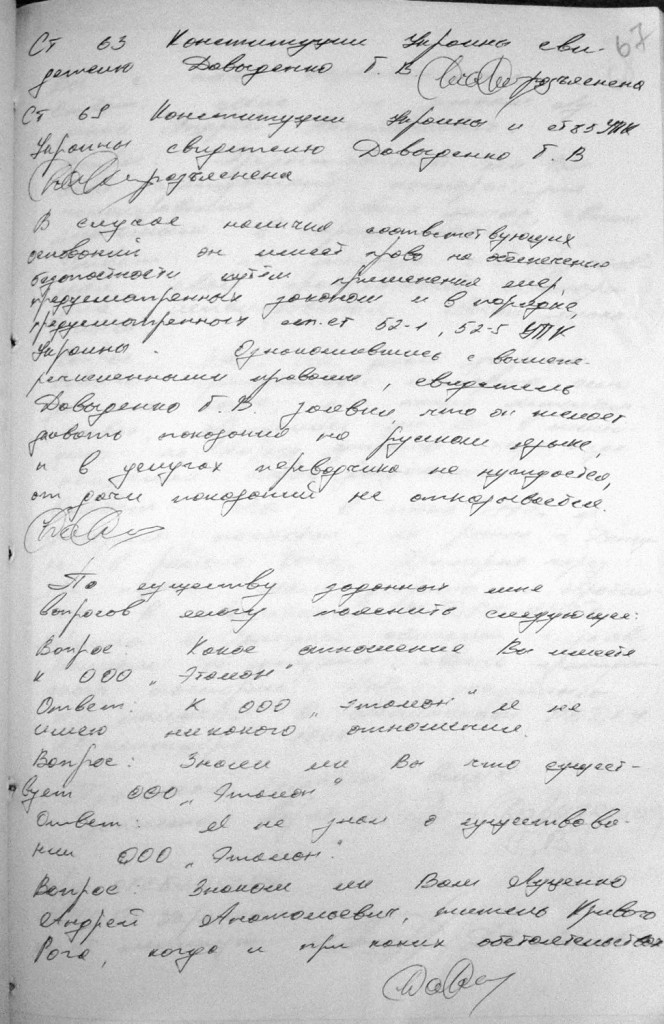 67
Ст 63 Конституции Украины сви-
детелю Давыденко Г. В разъяснена
Ст 63 Конституции Украины и ст 85 УПК
Украины свидетелю Давыденко Г. В
разъяснена
В случае наличия соответствующих
оснований он имеет право на обеспечение
безопасности путем применения мер,
предусмотренных законом и в порядке,
предусмотренном ст. ст 52-1, 52-5 УПК
Украины. Ознакомившись с вышепе-
речисленными правами, свидетель
Давыденко Г. В. заявил, что он желает
давать показания на русском языке,
и в услугах переводчика не нуждается,
от дачи показаний не отказывается.
По существу заданных мне
вопросов могу пояснить следующее:
Вопрос: Какое отношение Вы имеете
к ООО „Эталон"
Ответ: К ООО „Эталон" я не
имею никакого отношения.
Вопрос: Знали ли Вы что сущест-
вует ООО „Эталон"
Ответ: Я не знал о существова-
нии ООО „Эталон".
Вопрос: Знаком ли Вам Луценко
Андрей Анатольевич, житель Кривого
Рога, когда и при каких обстоятельствах